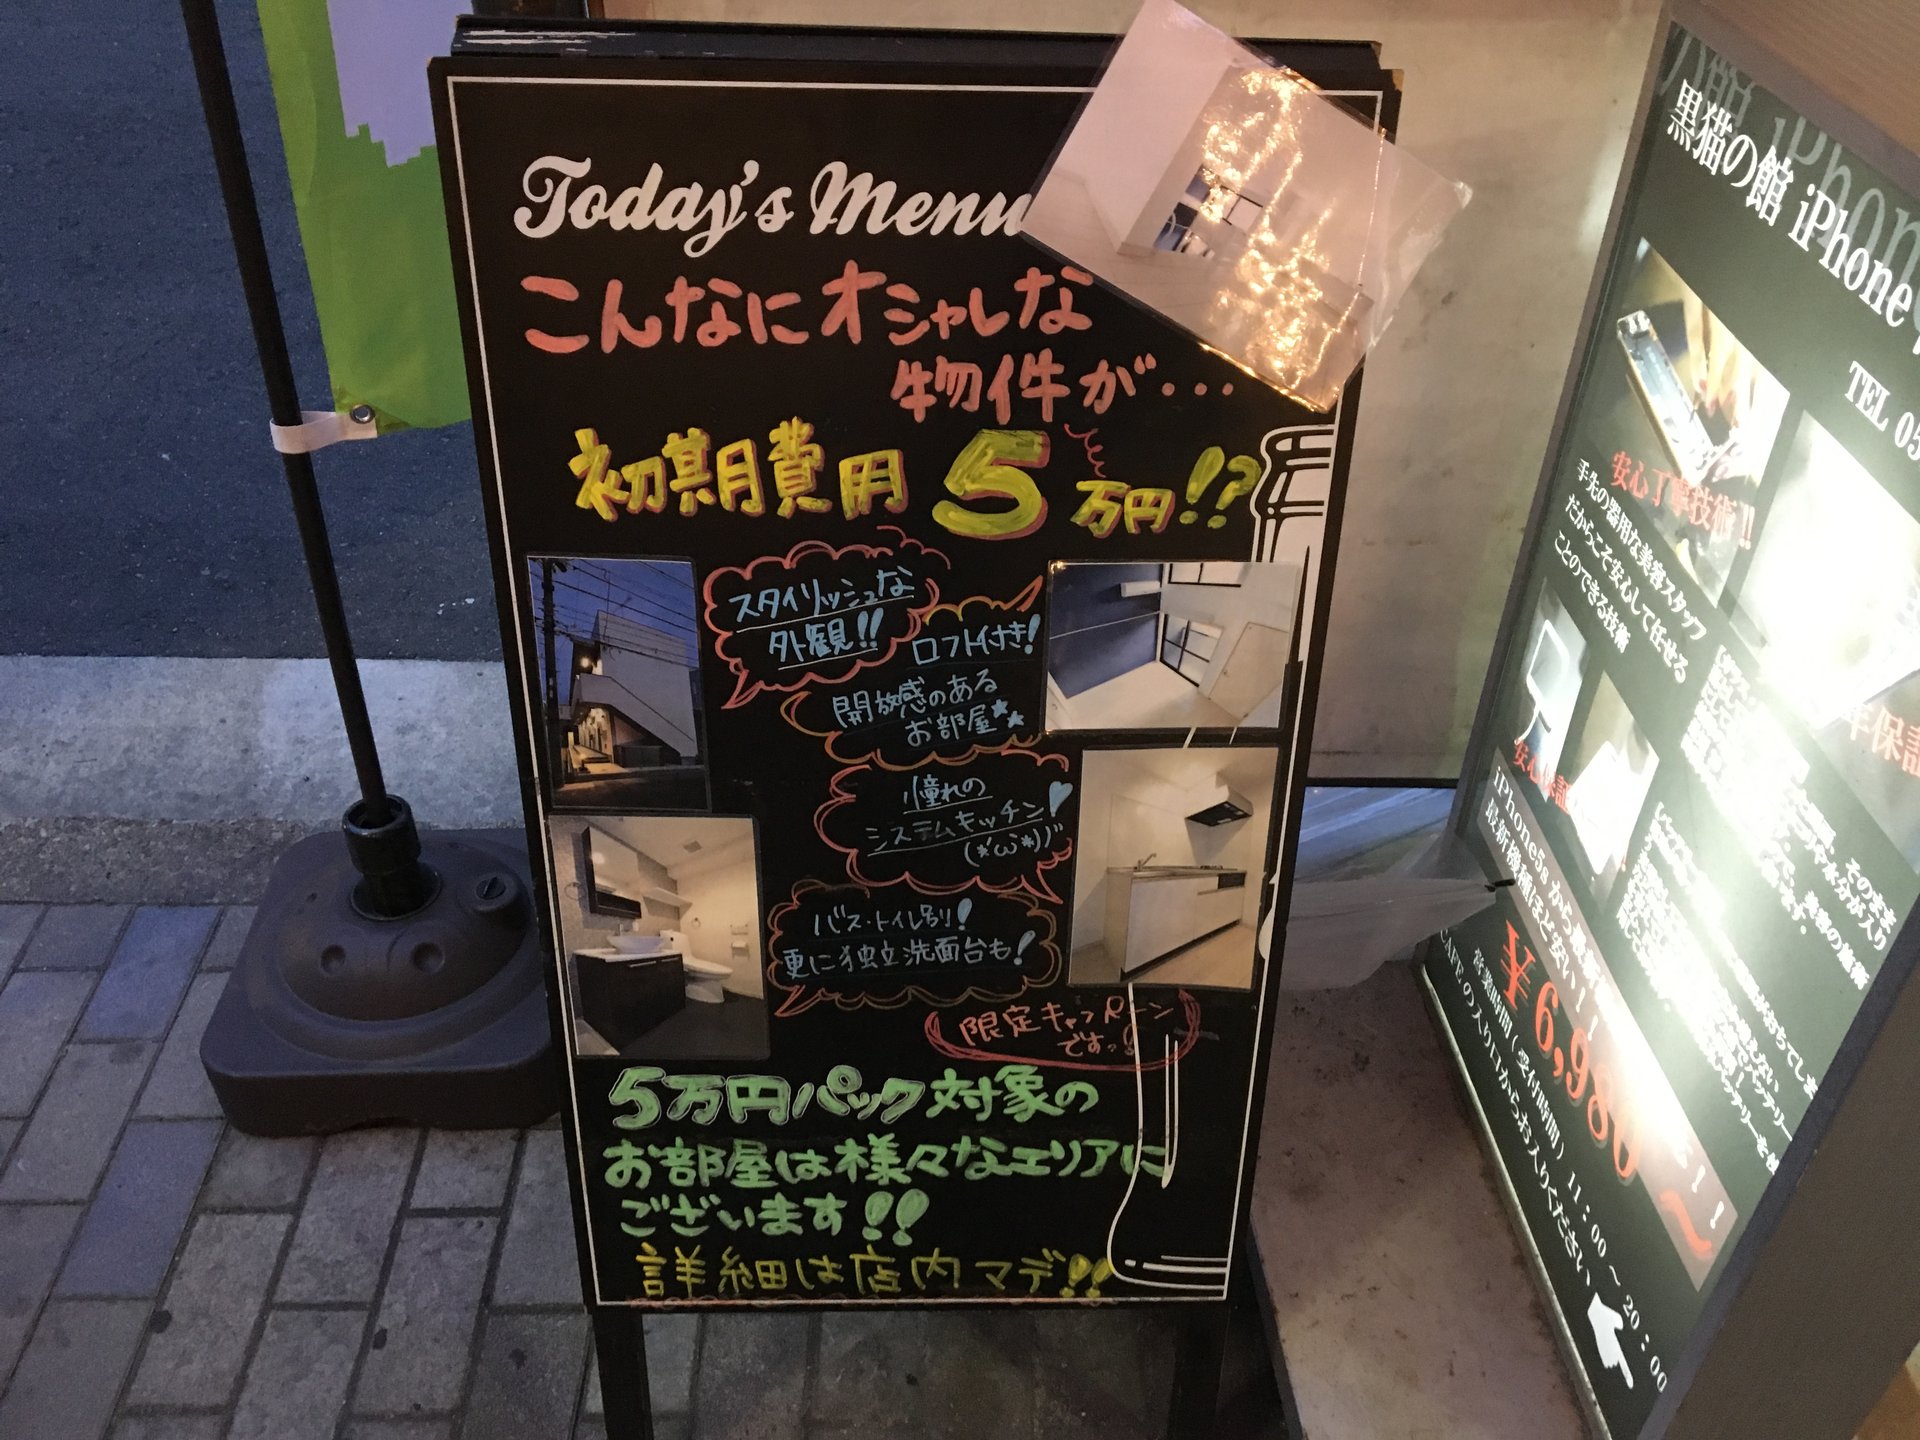 Today's Menu
こんなにオシャレな
物件が・・・
初期費用5万円!?
スタイリッシュな
外観!!
ロフト付き!
開放感のある
お部屋
憧れの
システムキッチン
(*'ω'*)
バス・トイレ別!
更に独立洗面台も!
限定キャンペーン
です!
5万円パック対象の
お部屋は様々なエリアに
ございます!!
詳細は店内マデ!!
黒猫の館 iPhone
TEL 05
安心丁寧技術!!
手先の器用な美容スタッフ
だからこそ安心して任せる
ことのできる技術
安心保証
年保証
iPhone5s から最新
最新機種ほど安い!!
¥6,980
営業時間(受付時間) 11:00～20:00
CAFEの入り口からお入りください